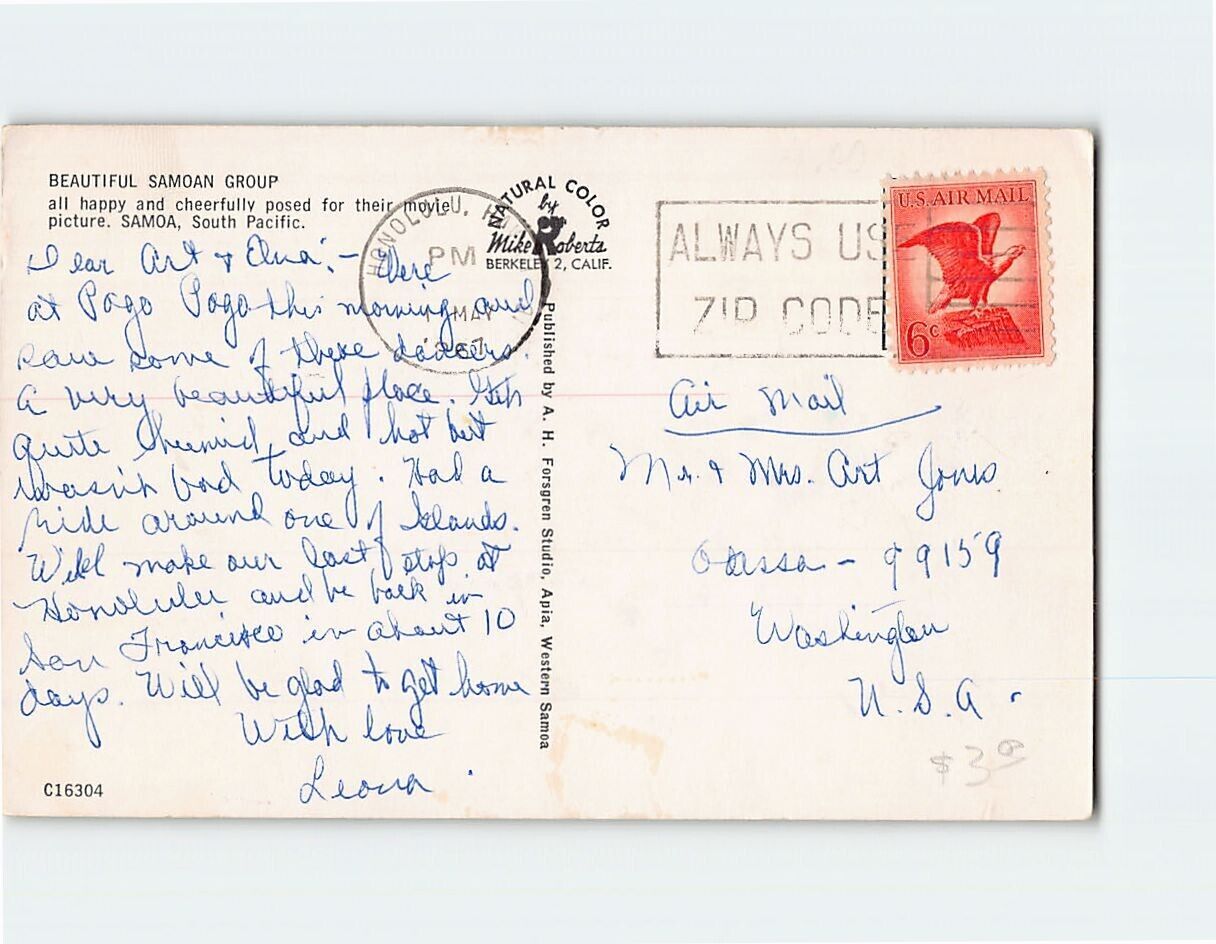 BEAUTIFUL SAMOAN GROUP
all happy and cheerfully posed for their movie
picture. SAMOA, South Pacific.
Dear Art & Elna:- Were
at Pago Pago this morning and
saw some of these dancers.
A very beautiful place. Gets
quite humid, and hot but
wasn't bad today. Had a
ride around one of Islands.
Will make our last stop at
Honolulu and be back in
San Francisco in about 10
days. Will be glad to get home
With love
Leona.
C16304
HONOLULU, H
PM
MAY
1967
NATURAL COLOR
by
Mike Roberts
BERKELEY 2, CALIF.
Published by A. H. Forsgren Studio, Apia, Western Samoa
ALWAYS USE
ZIP CODE
U.S. AIR MAIL
6c
Air Mail
Mr. & Mrs. Art Jones
Odessa - 99159
Washington
U.S.A.
$3